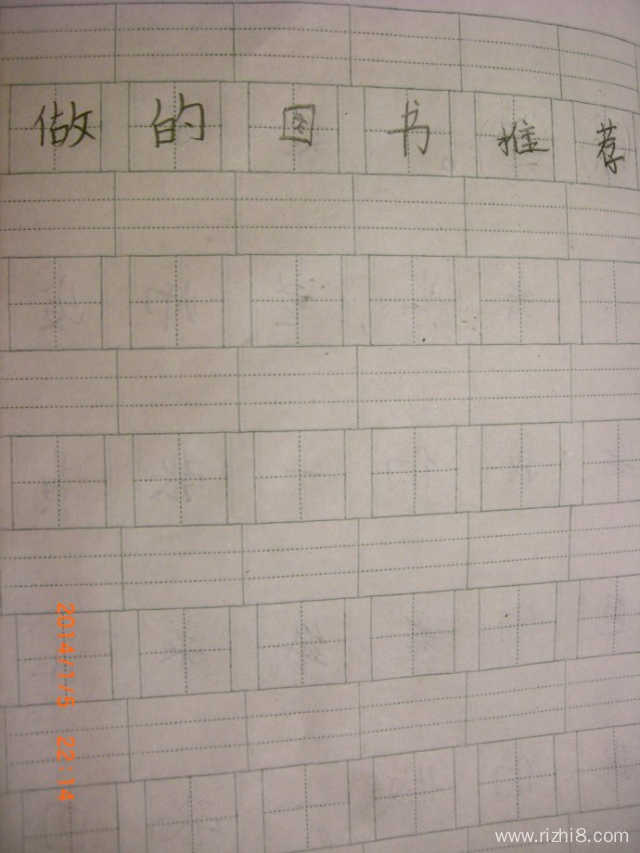 做的图书推荐
2014/1/5 22:14
www.rizhi8.com